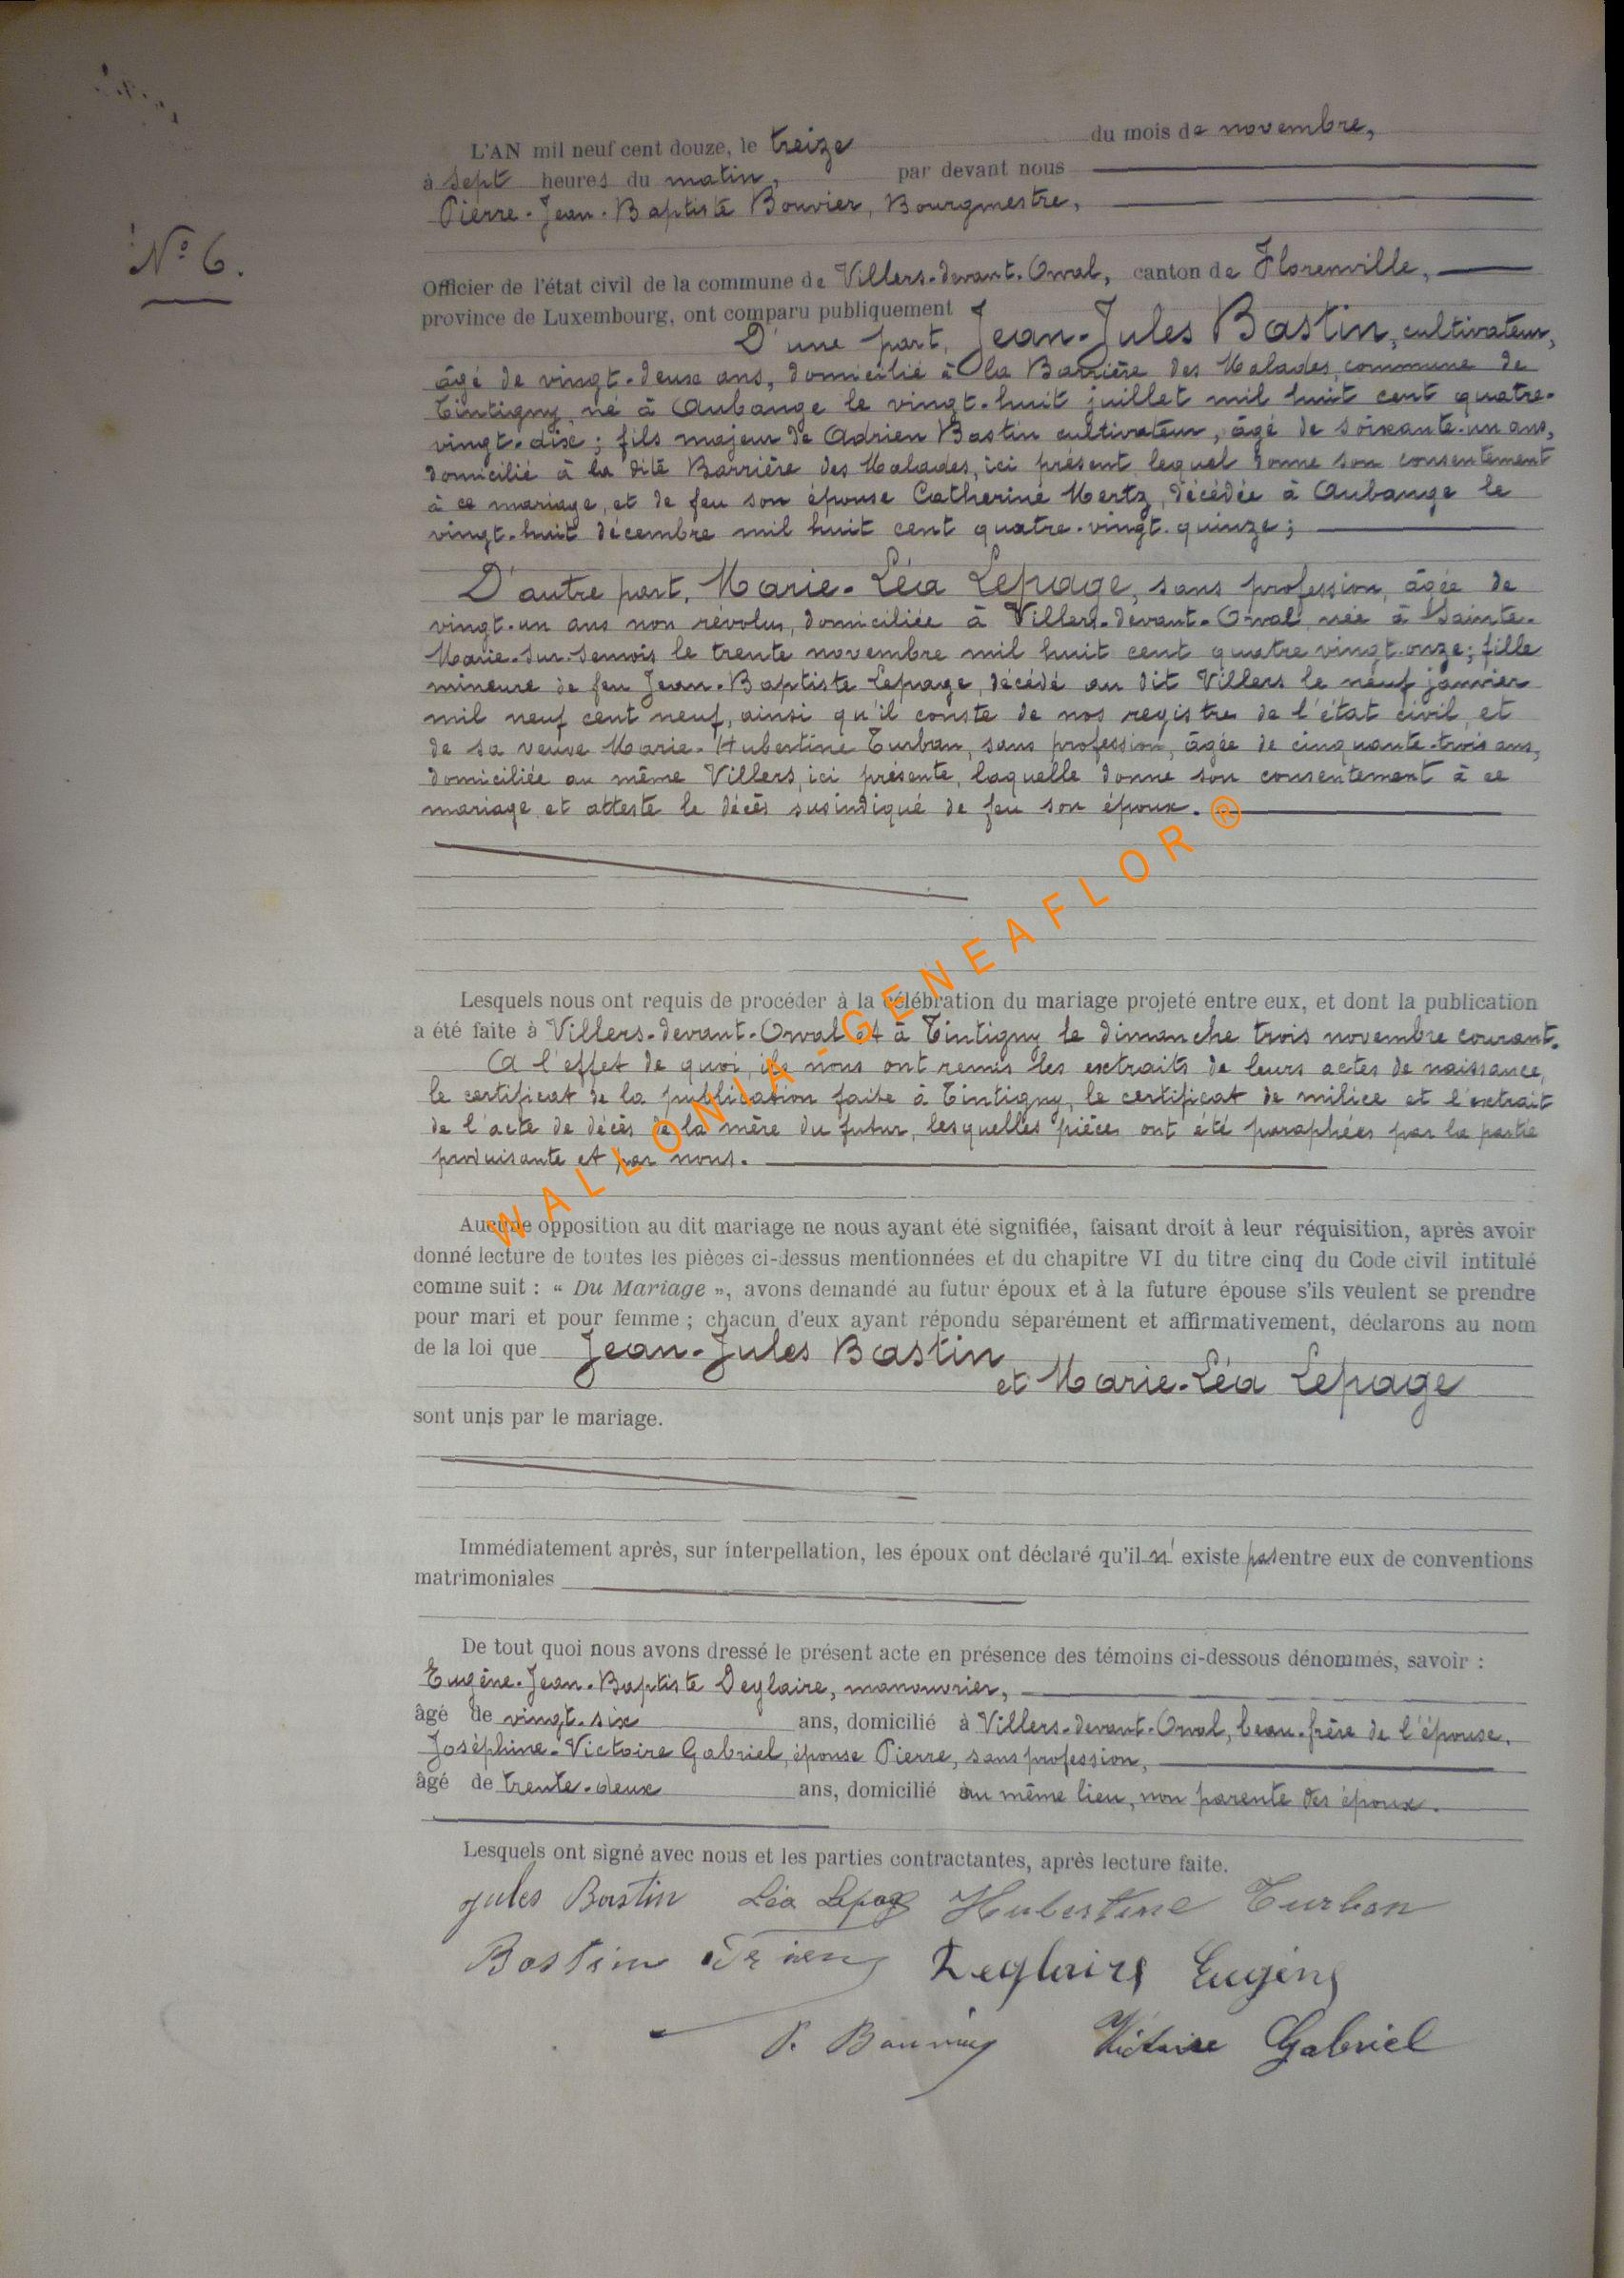 L'AN mil neuf cent douze, le treize du mois de novembre,
à sept heures du matin, par devant nous
Pierre-Jean-Baptiste Bouvier, Bourgmestre,
N° 6.
Officier de l'état civil de la commune de Villers-devant-Orval, canton de Florenville,
province de Luxembourg, ont comparu publiquement
D'une part, Jean-Jules Bastin, cultivateur,
âgé de vingt-deux ans, domicilié à la Barrière des Malades, commune de
Tintigny, né à Aubange le vingt-huit juillet mil huit cent quatre-
vingt-dix; fils majeur de Adrien Bastin cultivateur, âgé de soixante-un ans,
domicilié à la dite Barrière des Malades, ici présent, lequel donne son consentement
à ce mariage, et de feu son épouse Catherine Mertz, décédée à Aubange le
vingt-huit décembre mil huit cent quatre-vingt-quinze;
D'autre part, Marie-Léa Lepage, sans profession, âgée de
vingt-un ans non révolus, domiciliée à Villers-devant-Orval, née à Sainte-
Marie-sur-Semois le trente novembre mil huit cent quatre vingt-onze; fille
mineure de feu Jean-Baptiste Lepage, décédé au dit Villers le neuf janvier
mil neuf cent neuf, ainsi qu'il conste de nos registre de l'état civil, et
de sa veuve Marie-Hubertine Turban, sans profession, âgée de cinquante-trois ans,
domiciliée au même Villers, ici présente, laquelle donne son consentement à ce
mariage et atteste le décès susindiqué de feu son époux.
WALLONIA-GENEAFLOR®
Lesquels nous ont requis de procéder à la célébration du mariage projeté entre eux, et dont la publication
a été faite à Villers-devant-Orval et à Tintigny le dimanche trois novembre courant.
A l'effet de quoi, ils nous ont remis les extraits de leurs actes de naissance,
le certificat de la publication faite à Tintigny, le certificat de milice et l'extrait
de l'acte de décès de la mère du futur, lesquelles pièces ont été paraphées par la partie
produisante et par nous.
Aucune opposition au dit mariage ne nous ayant été signifiée, faisant droit à leur réquisition, après avoir
donné lecture de toutes les pièces ci-dessus mentionnées et du chapitre VI du titre cinq du Code civil intitulé
comme suit : « Du Mariage », avons demandé au futur époux et à la future épouse s'ils veulent se prendre
pour mari et pour femme ; chacun d'eux ayant répondu séparément et affirmativement, déclarons au nom
de la loi que Jean-Jules Bastin
et Marie-Léa Lepage
sont unis par le mariage.
Immédiatement après, sur interpellation, les époux ont déclaré qu'il n'existe pas entre eux de conventions
matrimoniales
De tout quoi nous avons dressé le présent acte en présence des témoins ci-dessous dénommés, savoir :
Eugène-Jean-Baptiste Deglaire, manouvrier,
âgé de vingt-six ans, domicilié à Villers-devant-Orval, beau-frère de l'épouse.
Joséphine-Victoire Gabriel, épouse Pierre, sans profession,
âgé de trente-deux ans, domicilié au même lieu, non parente des époux.
Lesquels ont signé avec nous et les parties contractantes, après lecture faite.
Jules Bastin Léa Lepage Hubertine Turban
Bastin Deglaire Eugène
Victoire Gabriel